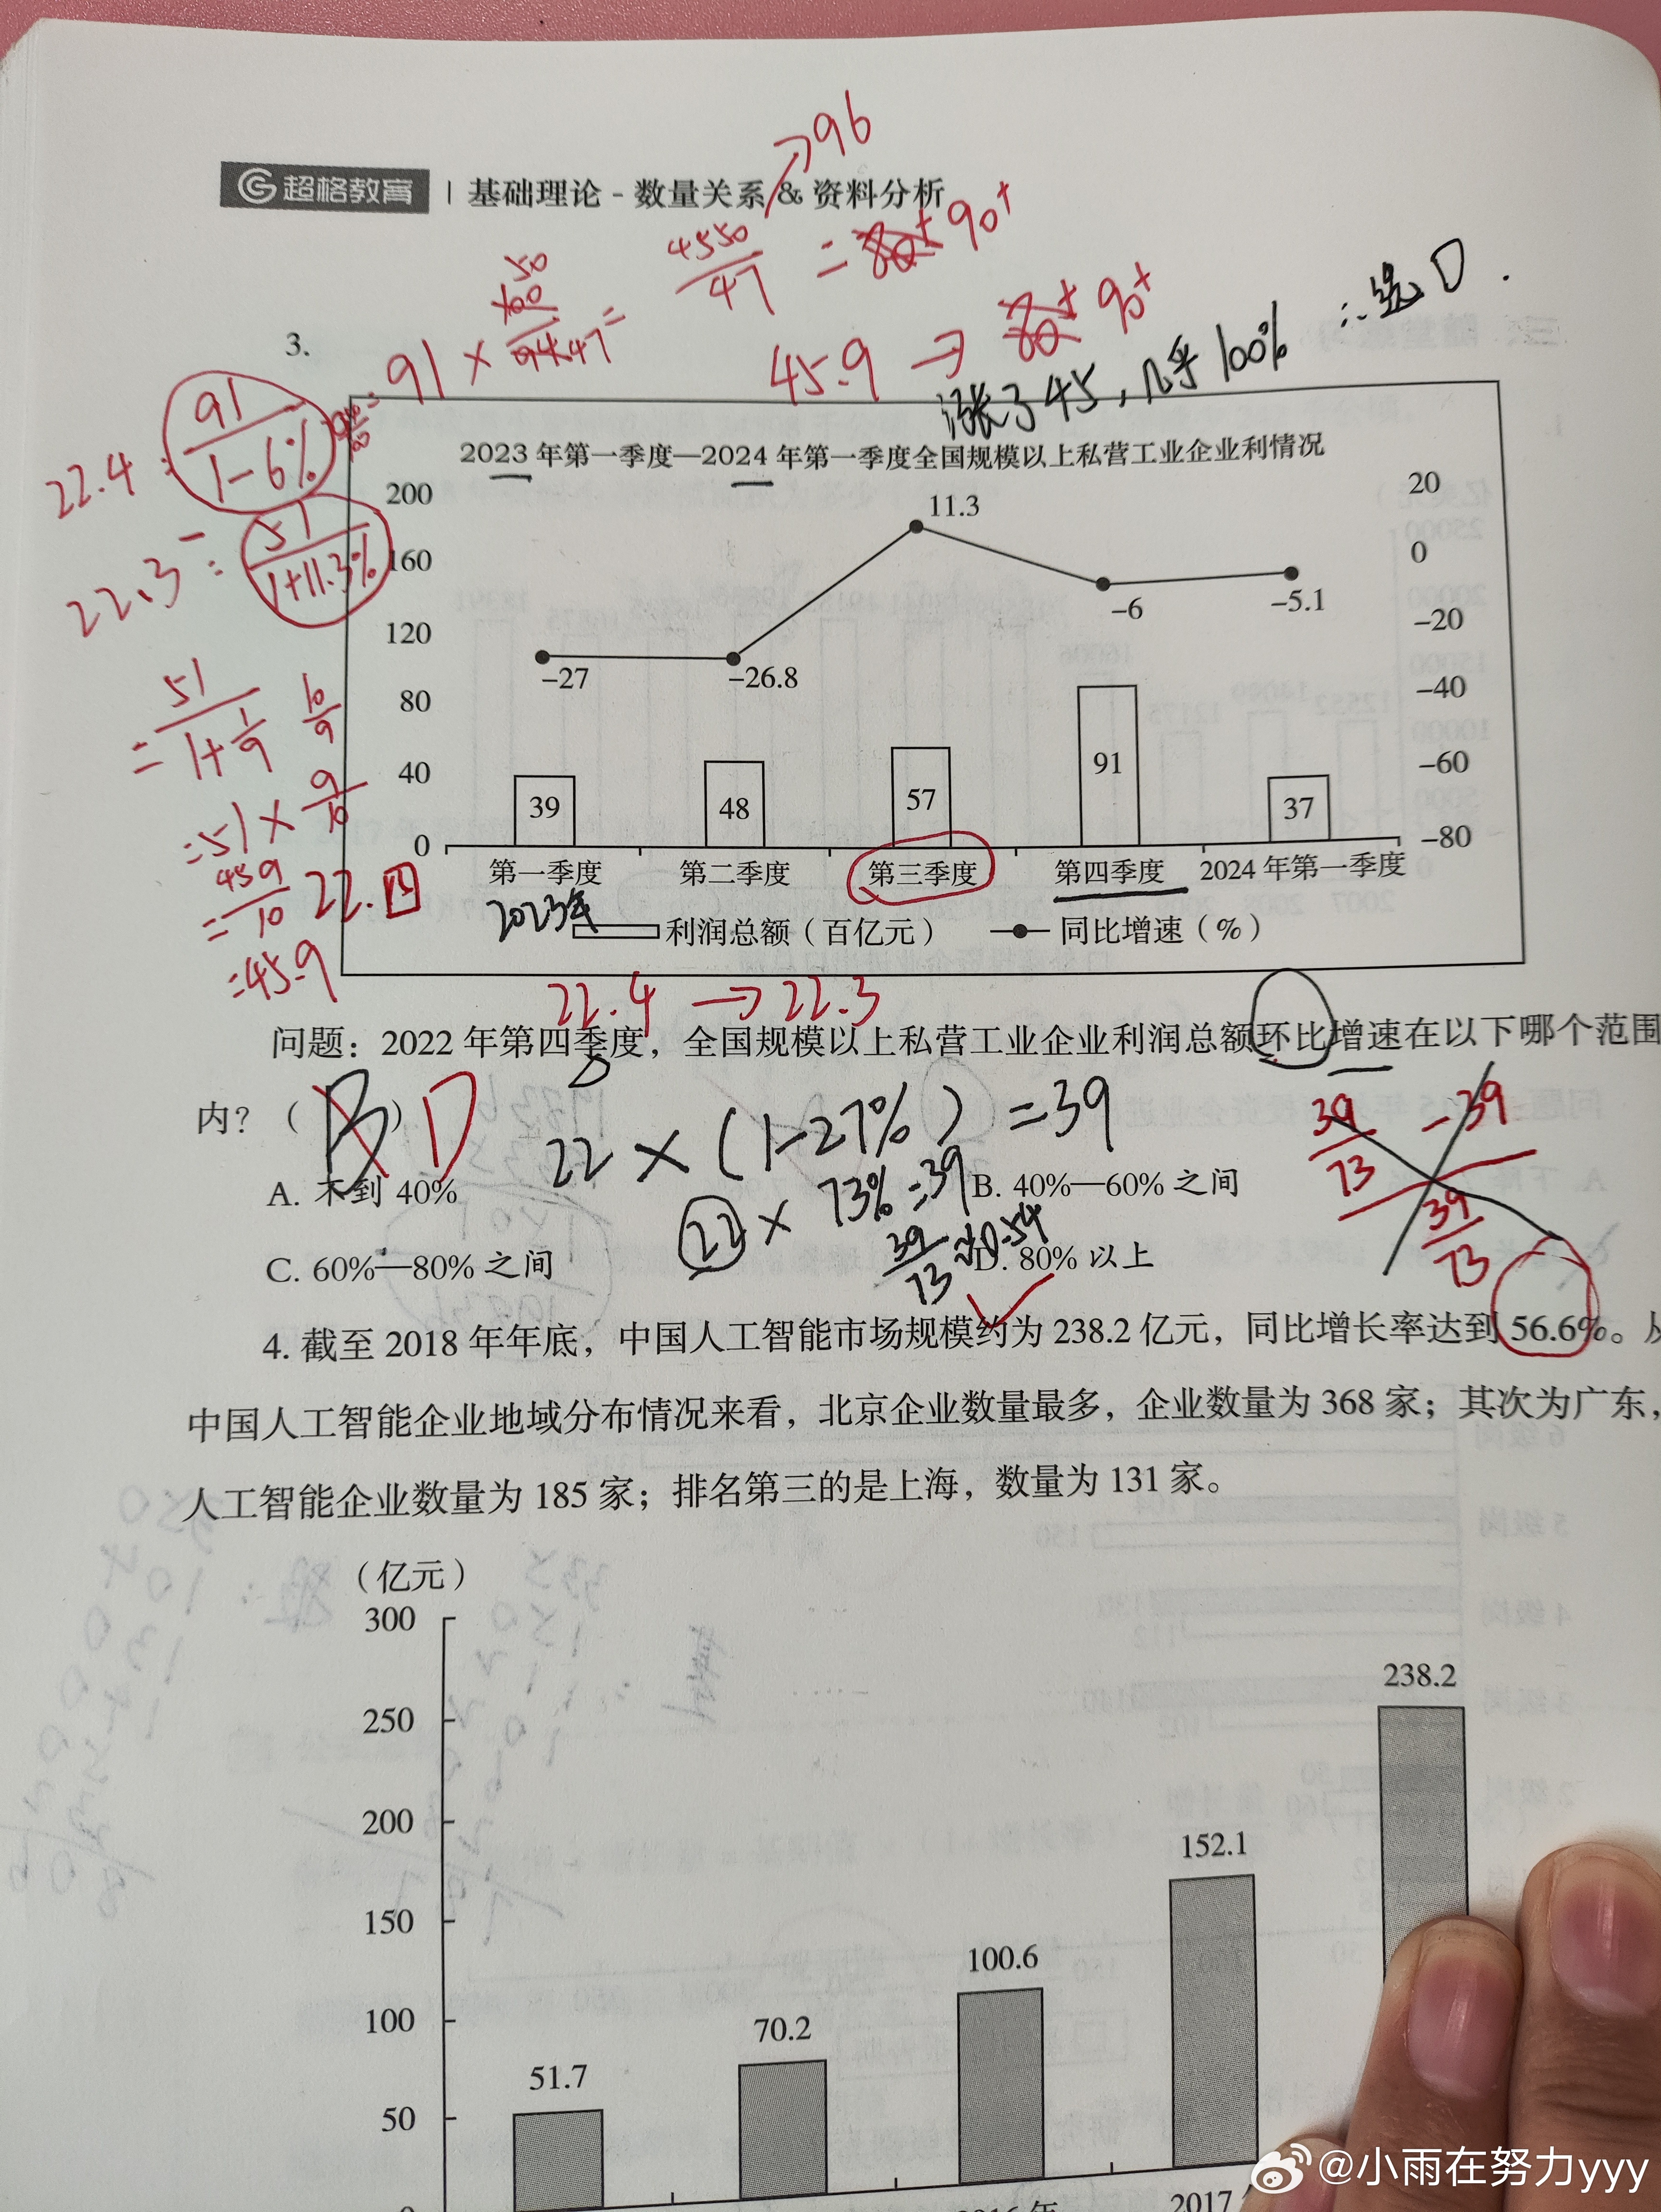 →96
超格教育 | 基础理论 - 数量关系 & 资料分析
91 × 50/47 = 4550/47 = 90+
45.9 → 90+
涨了45,几乎100% ∴选D.
3.
22.4 = 91/1-6%
22.3 = 51/1+11.3%
= 51/1+1/9 10/9
=51×9/10
=459/10 22.四
=45.9
2023年第一季度—2024年第一季度全国规模以上私营工业企业利情况
200
160
120
80
40
0
20
0
-20
-40
-60
-80
-27
-26.8
11.3
-6
-5.1
39
48
57
91
37
第一季度 第二季度 第三季度 第四季度 2024年第一季度
2023年
利润总额(百亿元) 同比增速(%)
22.4 → 22.3
问题:2022年第四季度,全国规模以上私营工业企业利润总额环比增速在以下哪个范围
内?( B ) D
22×(1-27%)=39
22×73%=39
39/73≈0.54
39/73 -39
39/73
A. 不到 40%
B. 40%—60% 之间
C. 60%—80% 之间
D. 80% 以上
4. 截至 2018 年年底,中国人工智能市场规模约为 238.2 亿元,同比增长率达到 56.6%。从
中国人工智能企业地域分布情况来看,北京企业数量最多,企业数量为 368 家;其次为广东,
人工智能企业数量为 185 家;排名第三的是上海,数量为 131 家。
(亿元)
300
250
200
150
100
50
0
51.7
70.2
100.6
152.1
238.2
2016年
2017
@小雨在努力yyy